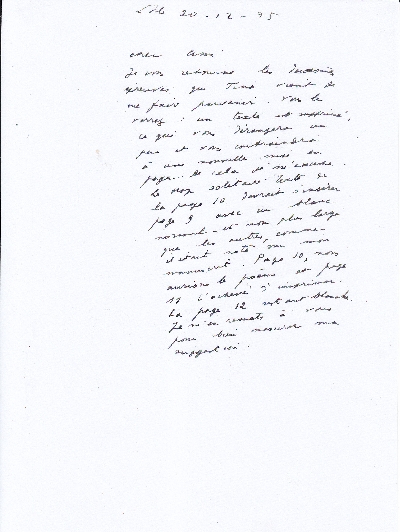 20-12-95
cher ami
Je vous retourne les dernières
épreuves que Tina vient de
me faire parvenir. Vous le
verrez : un texte est supprimé,
ce qui vous dérangera un
peu et vous contraindra
à une nouvelle mise en
page... de cela je m'excuse.
Le solitaire texte de
la page 10 devrait s'insérer
page 9 avec un blanc
normal - et non plus large
que les autres, comme
il était noté sur mon
manuscrit. Page 10, nous
aurions le poème en page
11 l'achevé d'imprimer.
La page 12 restant blanche.
Je m'en remets à vous
pour bien mesurer ma